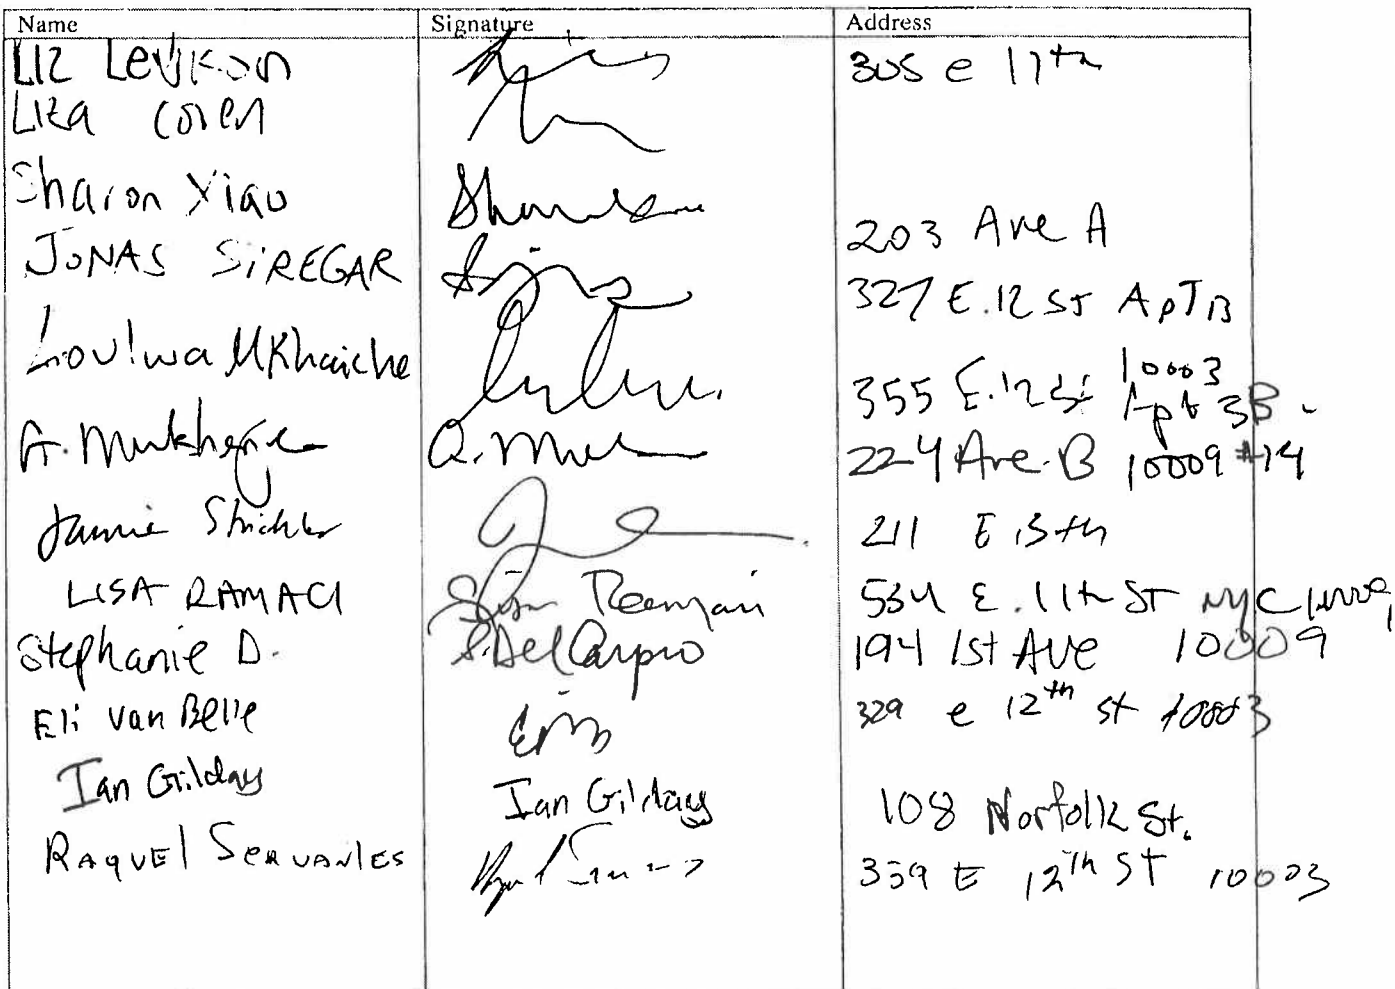 Name Signature Address
Liz Levkon 305 e 11th
Liza Coren
Sharon Xiao 203 Ave A
JONAS SiREGAR 327 E.12 ST ApT B
Loulwa MKhaiche 355 E.12 St 10003 Apt 3B
A. Mukherjee A.Muk 224 Ave B 10009 #14
Jamie Strickler 211 E 13th
LISA RAMACI 534 E. 11th ST NYC
Stephanie D. S.DelCarpio 194 1st AVE 10009
Eli van Belle 329 e 12th st 10003
Ian Gilday Ian Gilday 108 Norfolk St.
RAQUEl SERVANTES 359 E 12th ST 10003